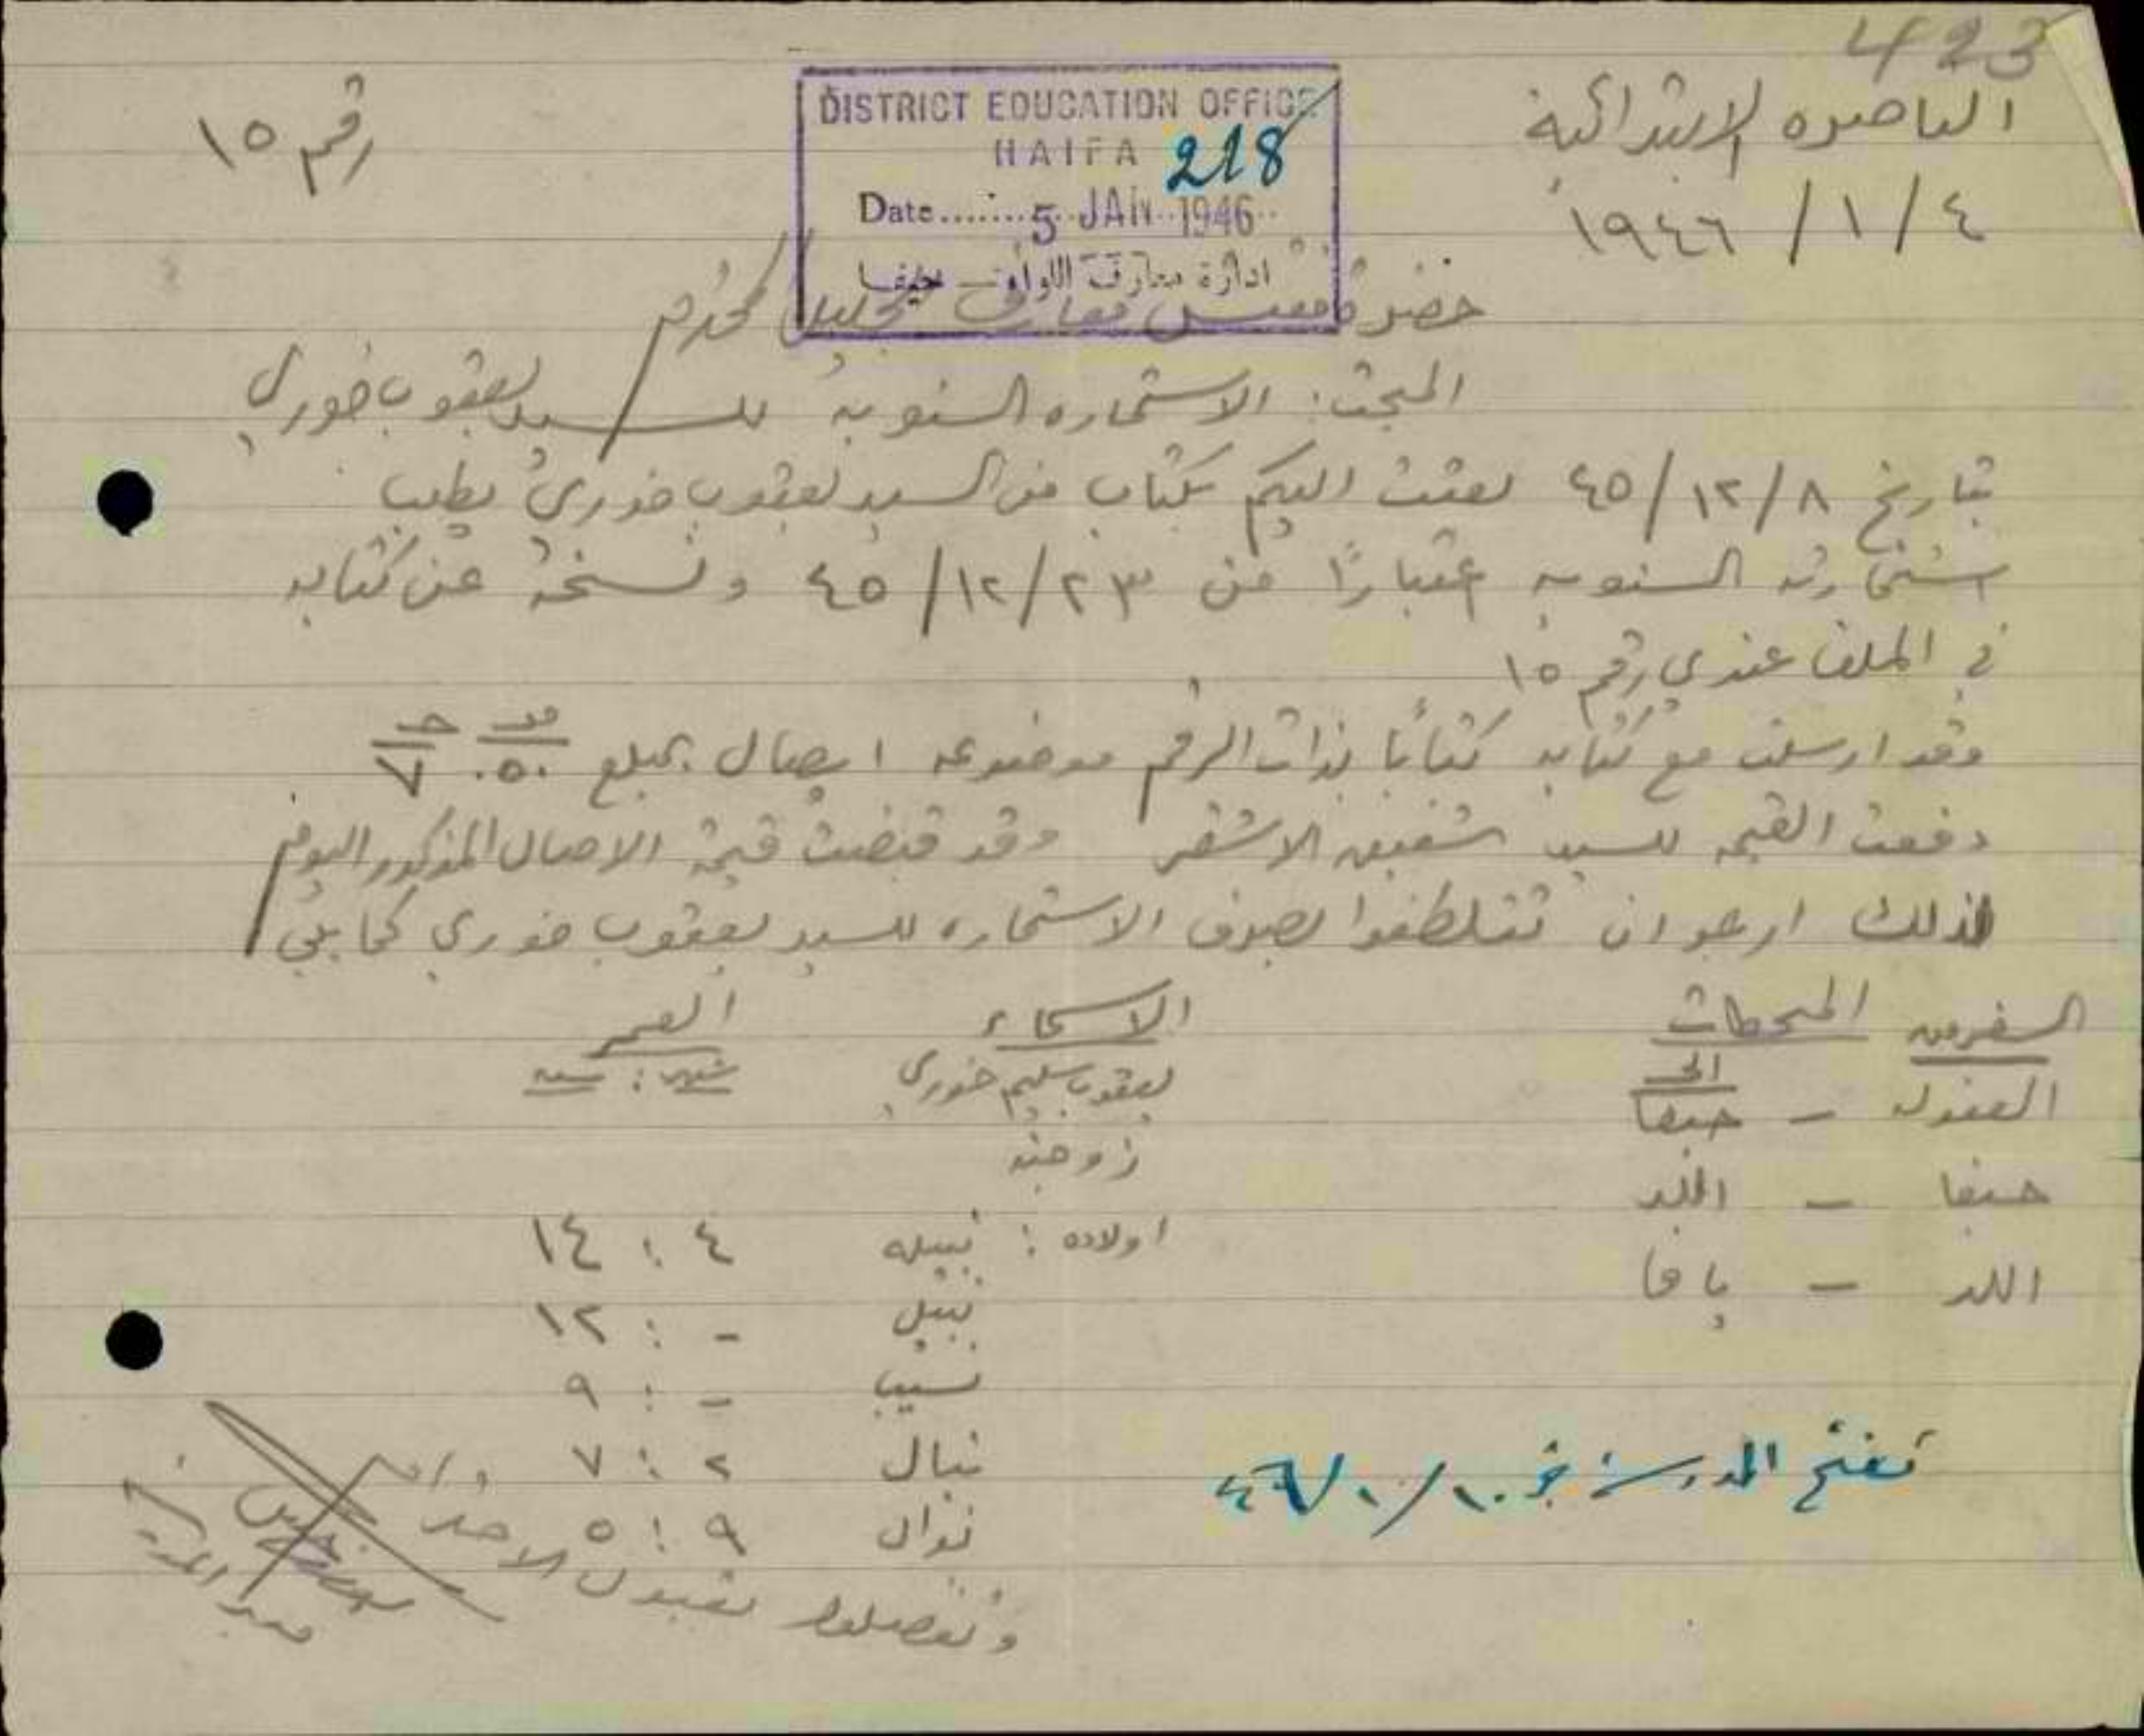 423
الناصره الابتدائية
رقم ١٥
٤/١/١٩٤٦
DISTRICT EDUCATION OFFICE
HAIFA 218
Date....... 5 JAN 1946
ادارة معارف اللواء - حيفا
حضرة مفتش معارف الجليل المحترم
المبحث: الاستماره السنويه للسيد يعقوب خوري
بتاريخ ٨/١٢/٤٥ بعثت اليكم بكتاب من السيد يعقوب خوري يطلب
استمارته السنويه اعتبارًا من ٢٣/١٢/٤٥ ونسخة عن كتابه
في الملف عندي رقم ١٥
وقد ارسلت مع كتابه كتابًا بذات الرقم موضوعه ايصال بمبلغ ٠٥٠ ٧
دفعت القيمه للسيد شفيق الاشقر وقد قبضت قيمة الاصال المذكور اليوم
لذلك ارجو ان تتلطفوا بصرف الاستماره للسيد يعقوب خوري كما يلي
السفر من المحطات الاسماء العمر
الى شهر : سنه
العفوله - حيفا يعقوب سليم خوري
زوجته
حيفا - اللد
اولاده : نبيله ٤ : ١٤
اللد - يافا
نبيل - : ١٢
نسيب - : ٩
نبال ٢ : ٧
تفتح المدرسة في ١٠/١/٤٦
نوال ٩ : ٥
وتفضلوا بقبول الاحترام
مدير المدرسة